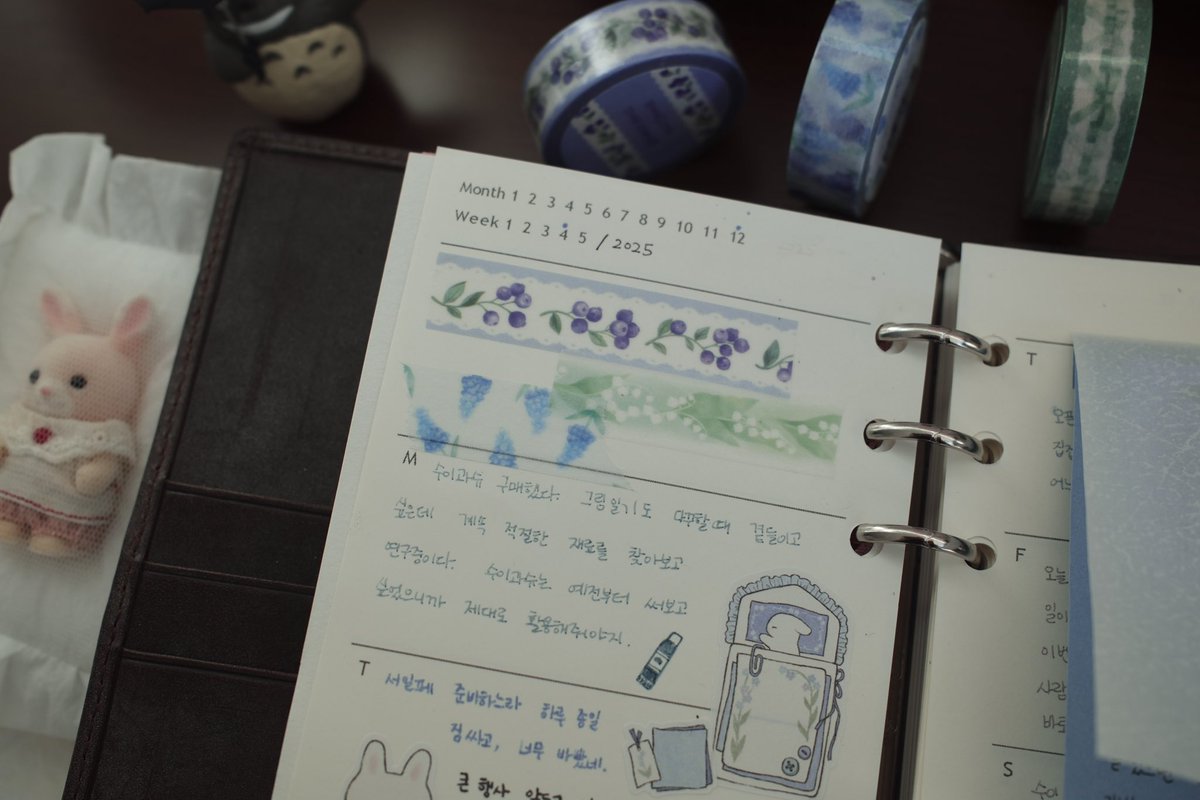 Month 1 2 3 4 5 6 7 8 9 10 11 12
Week 1 2 3 4 5 / 2025
M
수이과슈 구매했다. 그림일기도 다꾸할 때 곁들이고
싶은데 계속 적절한 재료를 찾아보고
연구중이다. 수이과슈는 예전부터 써보고
싶었으니까 제대로 활용해줘야지.
T
서일페 준비하느라 하루 종일
짐싸고, 너무 바빴네.
큰 행사
T
F
오늘
일이
이번
사람
바로
S